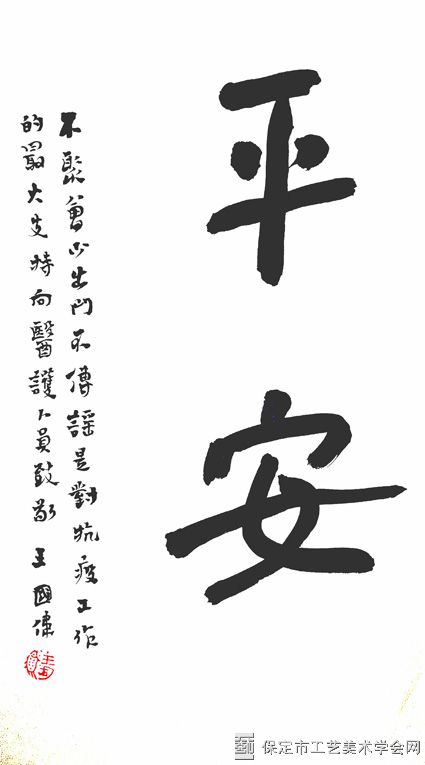 平安
不聚會少出門不傳謡是對抗疫工作
的最大支持向醫護人員致敬 王國偉
保定市工艺美术学会网